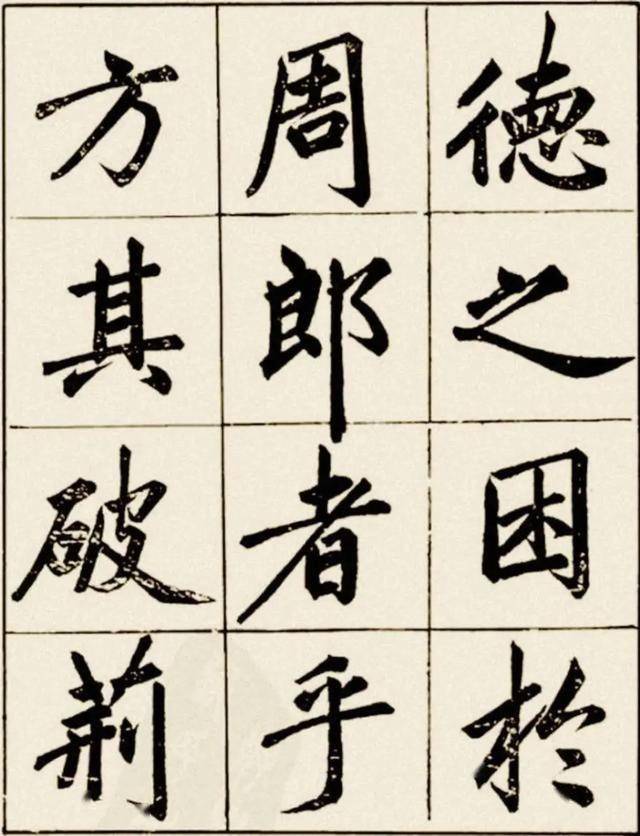 德之困於
周郎者乎
方其破荊